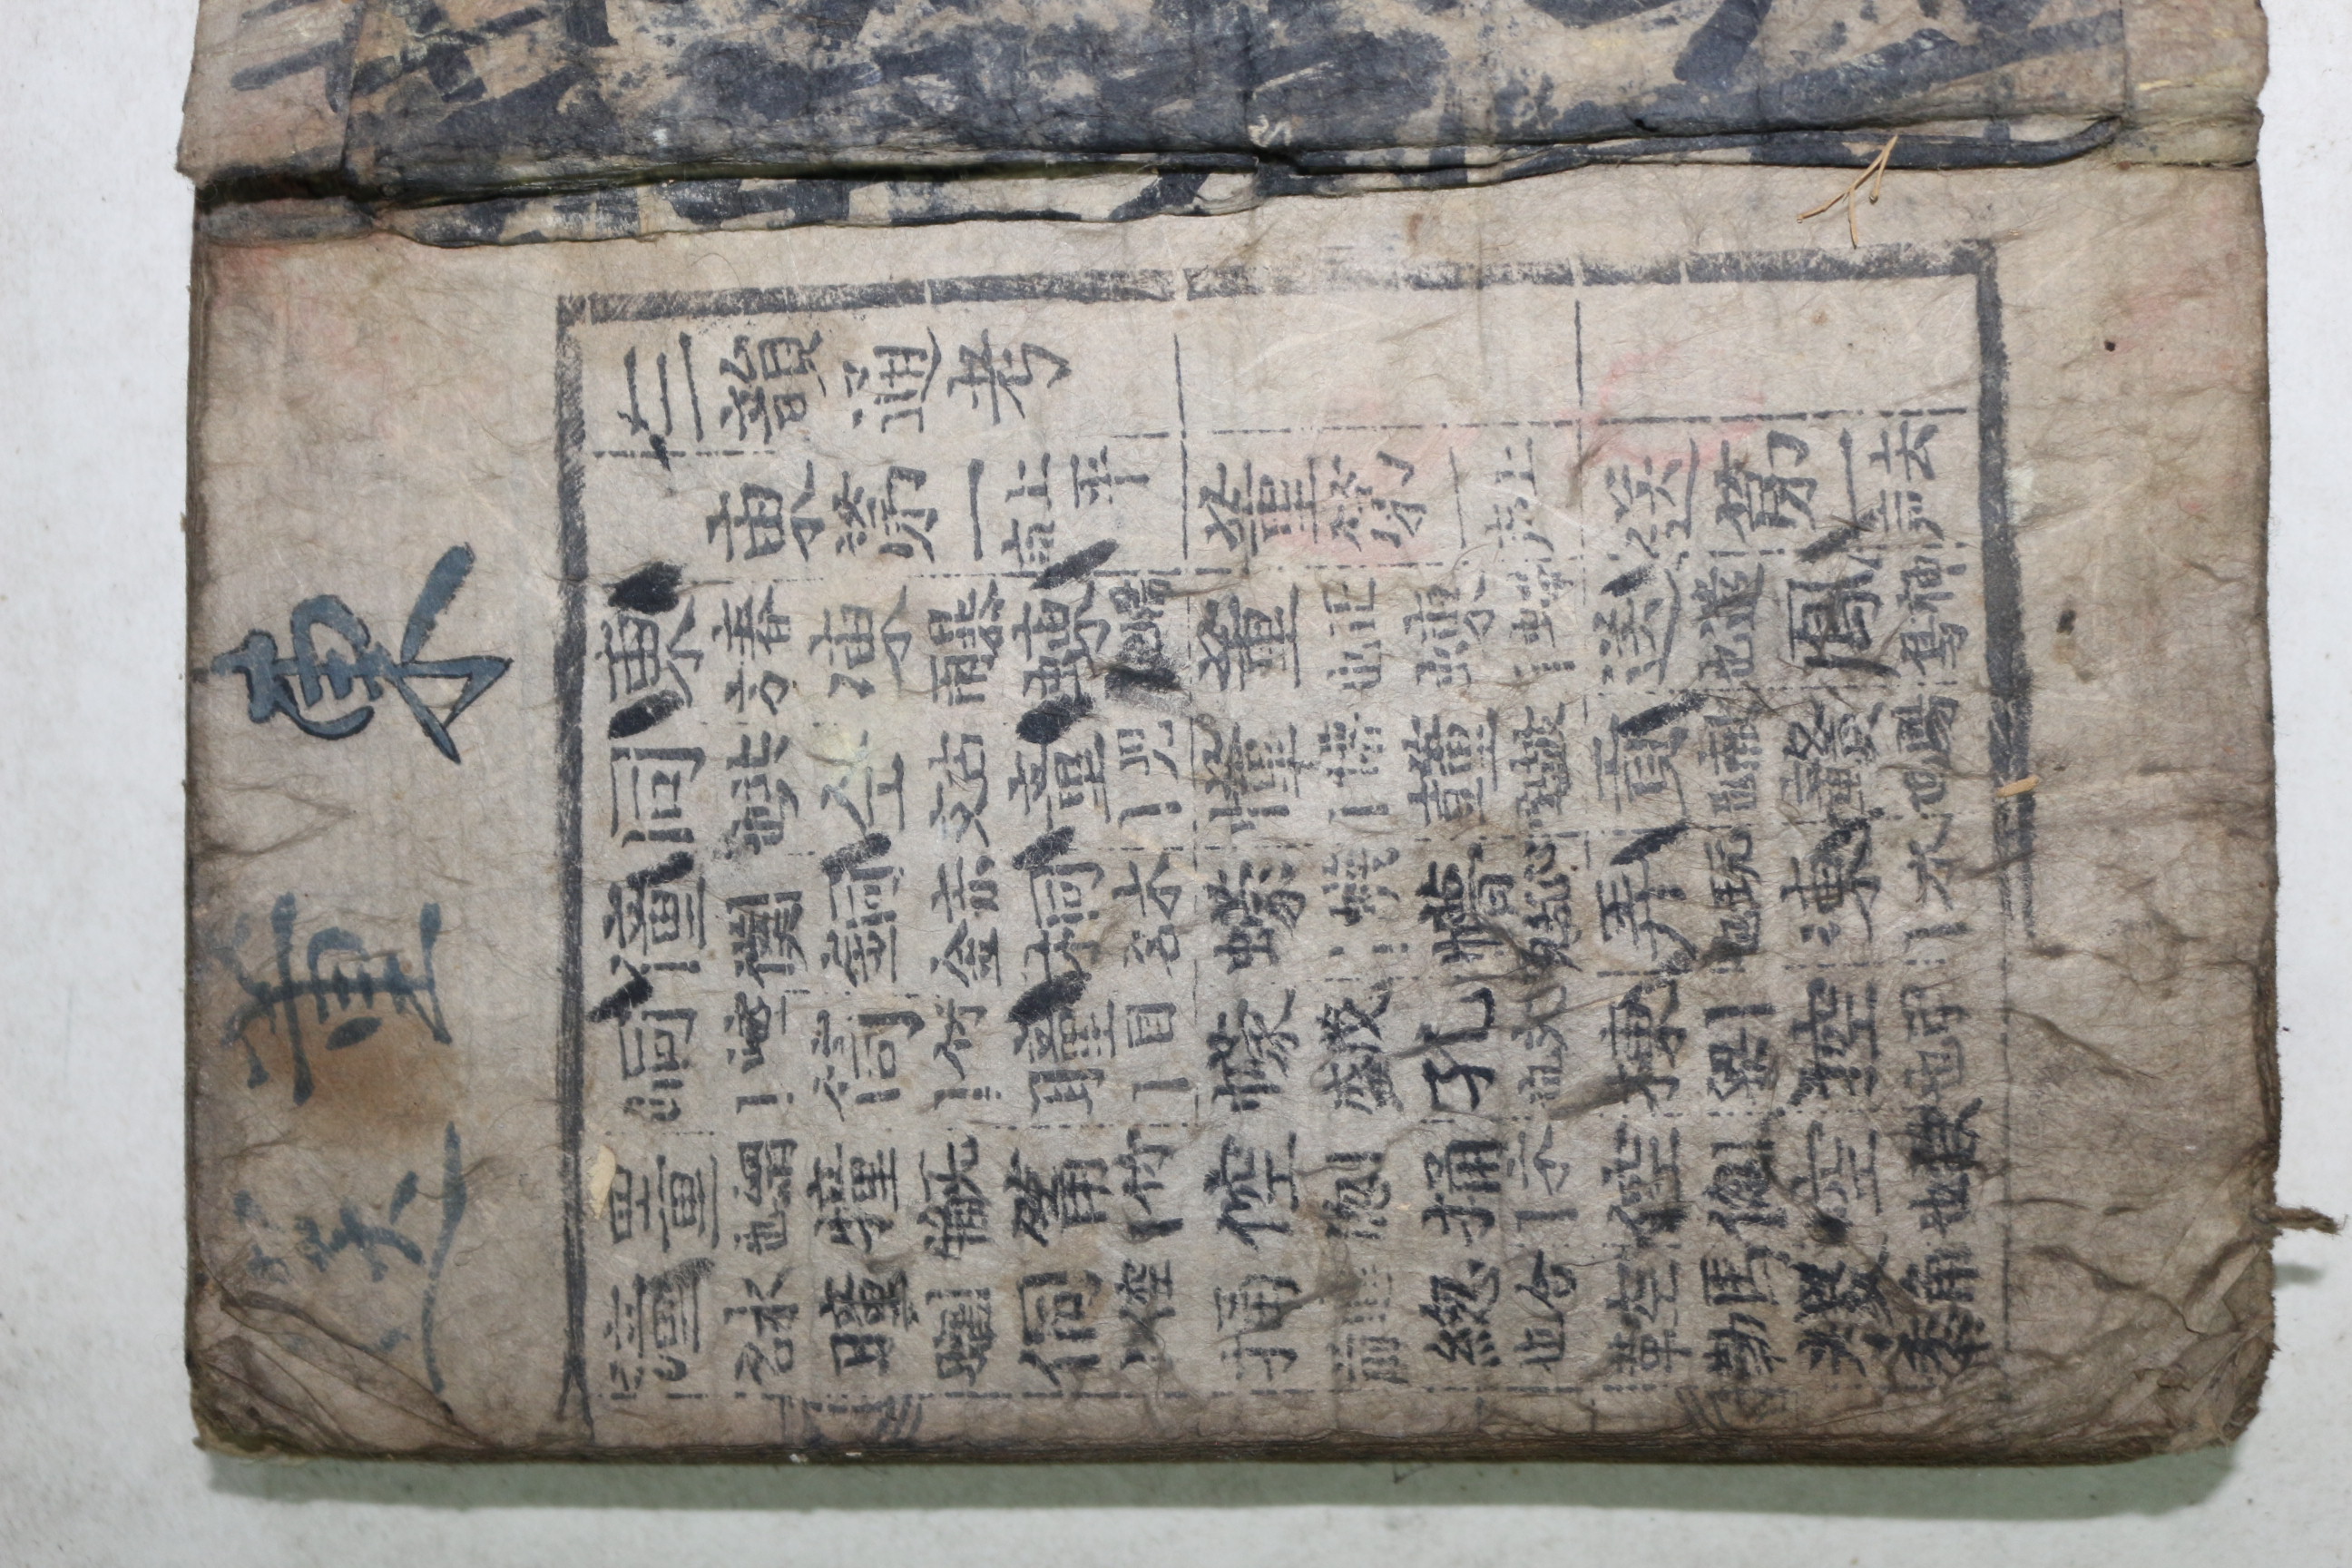 東 董 送
三韻通考
東第一 上平声 董第一 上声 送第一 去声
東 春方 涷 蝀 董 正也 蝀 送 遣也 鳳 神鳥
同 共也 仝 古文 童 兒｜ 懂 貢 獻也 贛 賜也
僮 僕 銅 赤金 桐 木名 蠓 蠛｜ 懵 心亂皃 弄 玩也 涷 水｜
峒 崆｜ 筒 竹｜ 瞳 目｜ 幪 茂盛 孔 棟 ｜梁 控 引也
罿 網也 筩 竹｜ 倥 ｜偬 桶 木｜ 倥 ｜偬 空 缺也
潼 曈 曨 侗 倥｜ 捅 總 合也 鞚 馬勒 糉 角黍